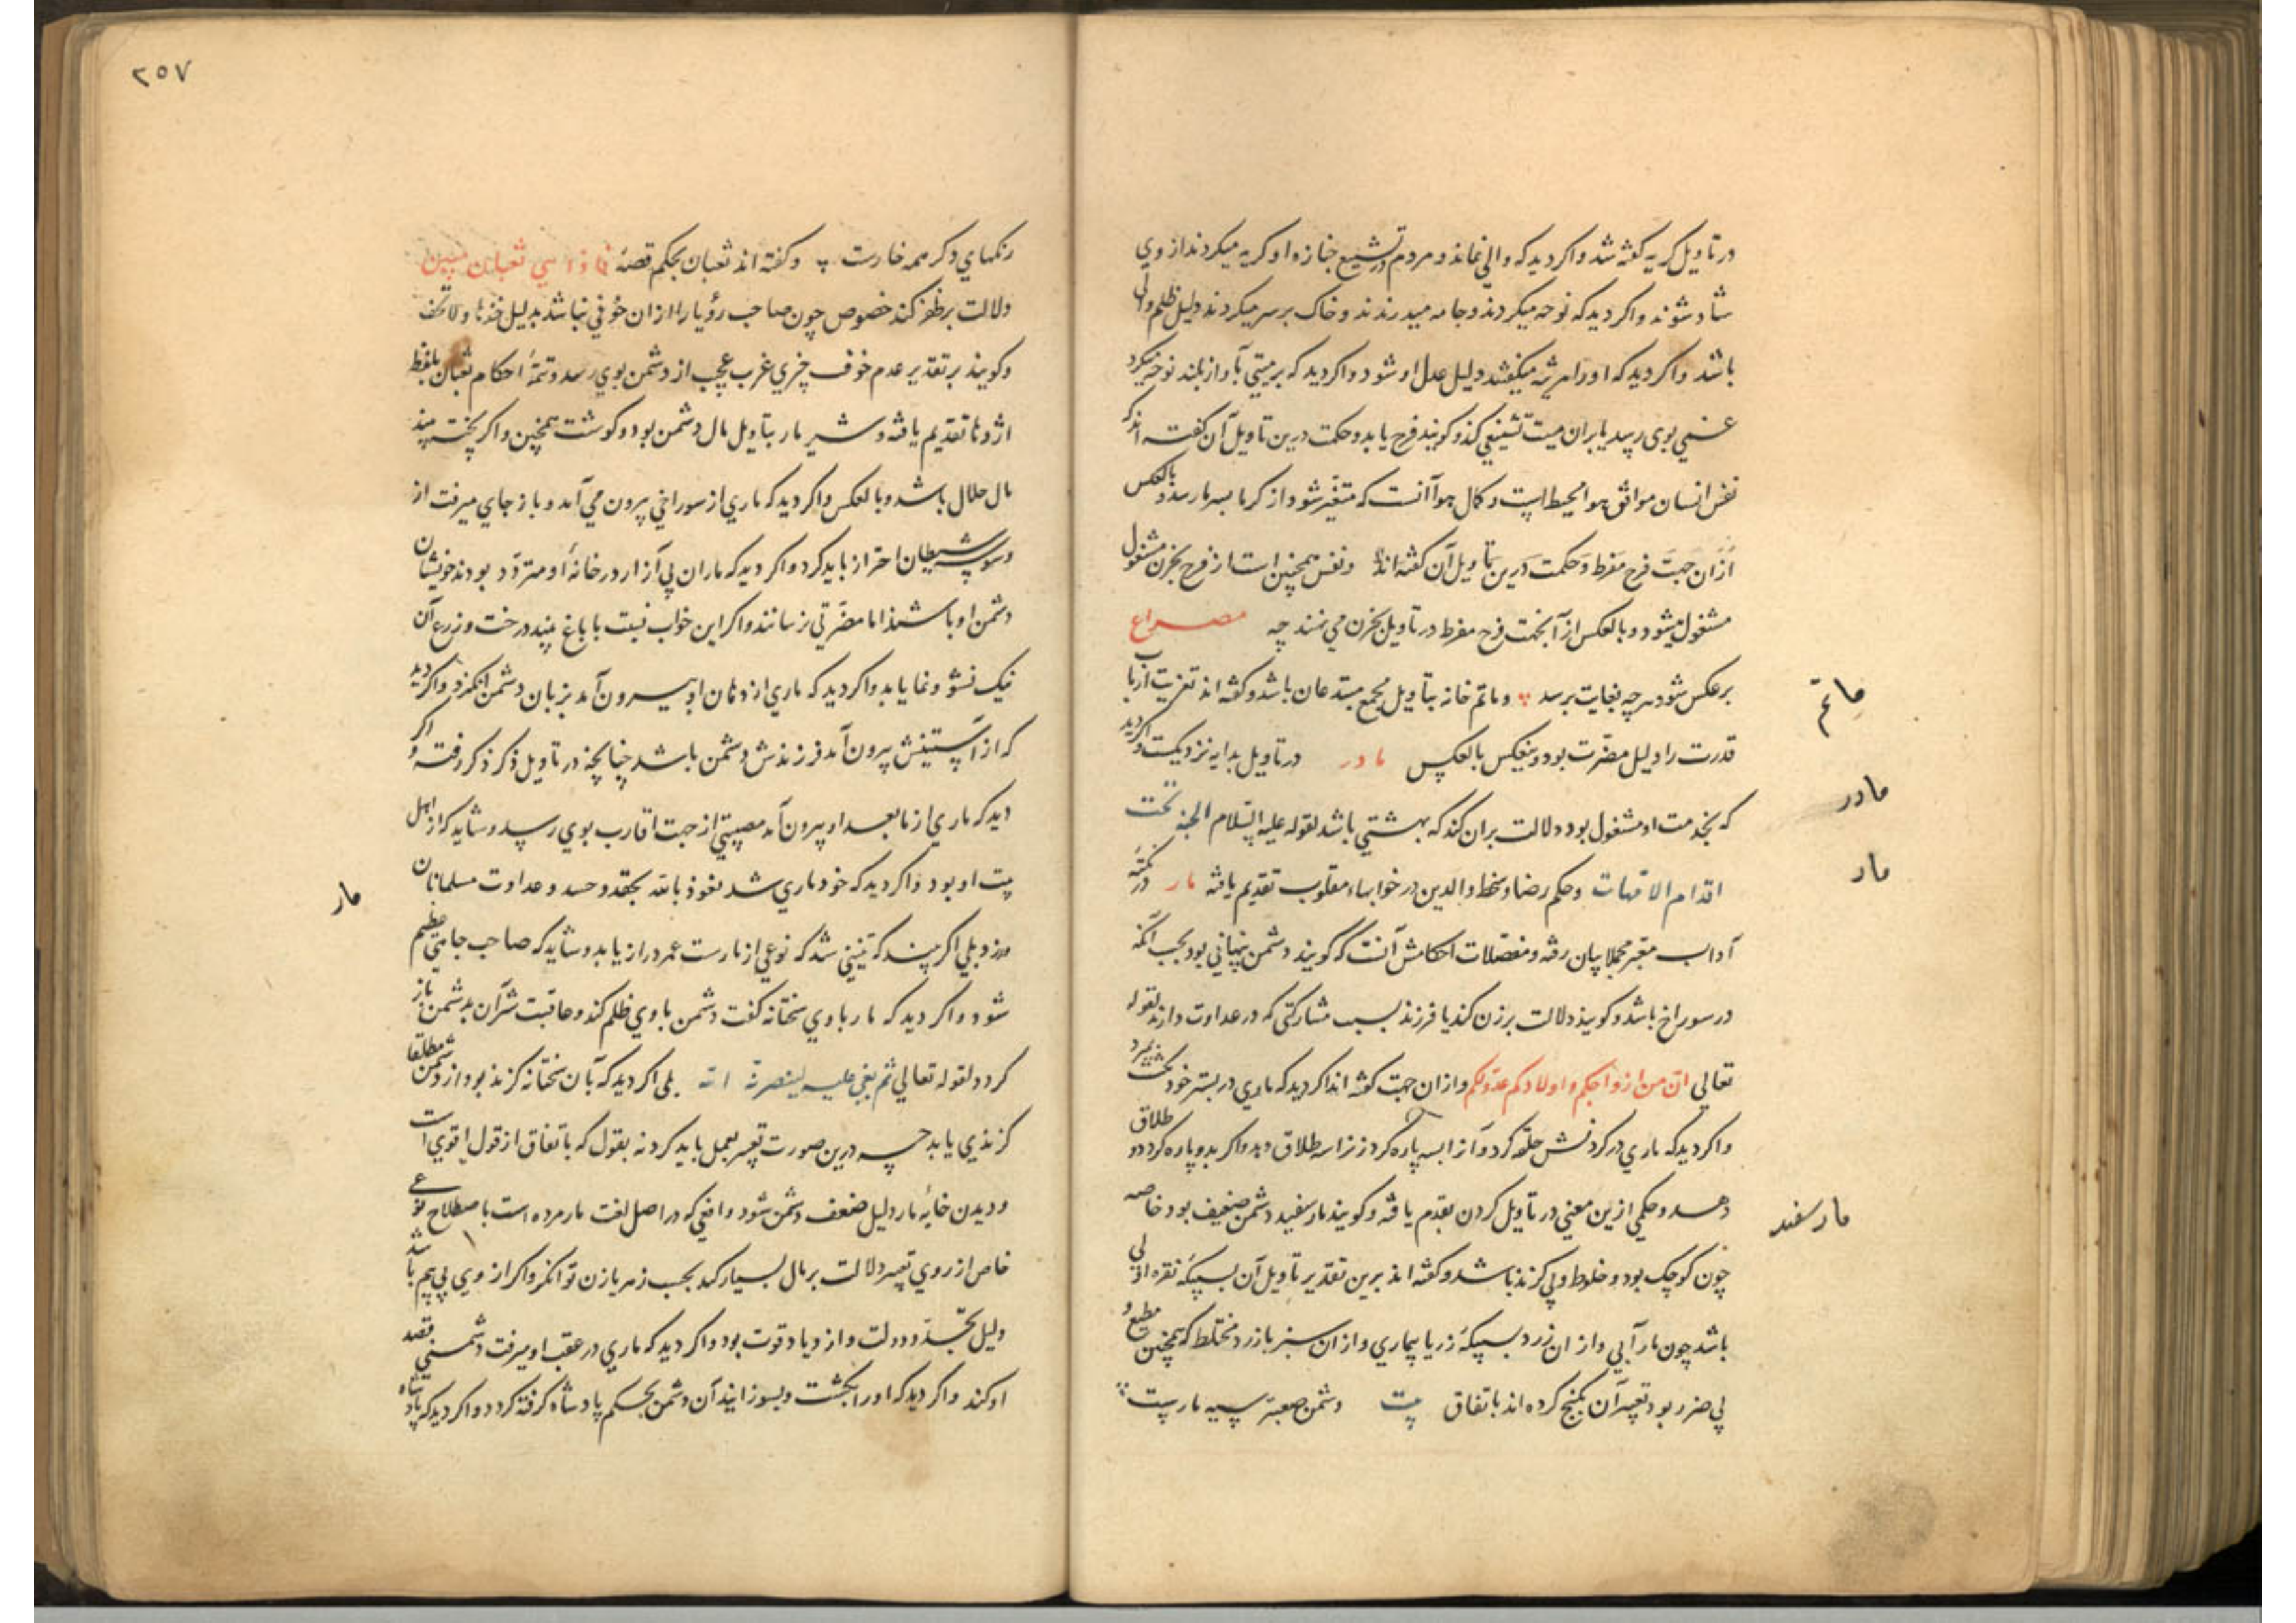 در تاویل گریه گفته شد و اگر دید که والی نماند و مردم در تشییع جنازه او گریه میکردند از وی
شاد شوند و اگر دید که نوحه میکردند و جامه میدرندند و خاک بر سر میکردند دلیل ظلم والی
باشد و اگر دید که او را مرثیه میگفتند دلیل عدل او شود و اگر دید که بر میتی بآواز بلند نوحه میکرد
غمی بوی رسد یا بران میت تشنیعی کند و گویند فرح یابد و حکمت درین تاویل آن گفته اند که
نفس انسان موافق هواء محیط است و کمال هوا آنست که متغیر شود از گرما بسرما رسد و بالعکس
ازان جهت فرح مفرط و حکمت درین تاویل آن گفته اند و نفس همچنین است از فرح بحزن مشغول
مشغول میشود و بالعکس از آنجهت فرح مفرط در تاویل بحزن می نهند چه مصراع
بر عکس شود هرچه بغایت برسد و ماتم خانه بتاویل مجمع مبتدعان باشد و گفته اند تعزیت ارباب
قدرت را دلیل مضرت بود و بنعکس بالعکس مادر در تاویل بدایه نزدیکست و اگر دید
که بخدمت او مشغول بود دلالت بران کند که بهشتی باشد لقوله علیه السلام الجنه تحت
اقدام الامهات و حکم رضا و سخط والدین در خوابهاء مقلوب تقدیم یافته مار در تتمه
آداب معبر مجملا بیان رفته و مفصلات احکامش آنست که گویند دشمن پنهانی بود بحسب آنکه
در سوراخ باشد و گویند دلالت بر زن کند یا فرزند بسبب مشارکتی که در عداوت دارند لقوله
تعالی ان من ازواجکم و اولادکم عدوا لکم و ازان جهت گفته اند اگر دید که ماری در بستر خود بکشت بمیرد
و اگر دید که ماری در گردنش حلقه کرد و آنرا بسه پاره کرد زنرا سه طلاق دهد و اگر بدو پاره کرد دو طلاق
دهد و حکمی ازین معنی در تاویل گردن تقدم یافته و گویند مار سفید دشمن ضعیف بود خاصه
چون کوچک بود و خلوط و بی گزند باشد و گفته اند برین تقدیر تاویل آن بسبیکه نقره اولی
باشد چون مار آبی و ازان زرد بسبیکه زر یا بیماری و ازان سبز بازرد مختلط که همچنین مطیع و
بی ضرر بود تعبیر آن بگنج کرده اند باتفاق بیت دشمن صعبتر سیه مارست
ماتم
مادر
مار
مار سفید
٢٥٧
رنگهای دگر همه خارست و گفته اند ثعبان بحکم قصه فاذا هی ثعبان مبین
دلالت بر ظفر کند خصوص چون صاحب رؤیا را ازان خوفی نباشد بدلیل خذها و لا تخف
و گویند بر تقدیر عدم خوف چیزی غریب عجب از دشمن بوی رسد و تتمه احکام ثعبان بلفظ
اژدها تقدیم یافته و شیر مار بتاویل مال دشمن بود و گوشت همچنین و اگر پخته بیند
مال حلال باشد و بالعکس و اگر دید که ماری از سوراخی بیرون می آمد و باز جای میرفت از
وسوسه شیطان احتراز باید کرد و اگر دید که ماران بی آزار در خانه او متردد بودند خویشان
دشمن او باشند اما مضرتی نرسانند و اگر این خواب نسبت با باغ بیند درخت و زرع آن
نیک نشو و نما یابد و اگر دید که ماری از دهان او بیرون آمد بزبان دشمن انگیزد و اگر دید
که از آستینش بیرون آمد فرزندش دشمن باشد چنانچه در تاویل ذکر ذکر رفته و اگر
دید که ماری از مابعد او بیرون آمد مصیبتی از جهت اقارب بوی رسد و شاید که از اهل
بیت او بود و اگر دید که خود ماری شد نعوذ بالله بحقد و حسد و عداوت مسلمانان
ورزد بلی اگر بیند که تنینی شد که نوعی از مارست عمر دراز یابد و شاید که صاحب جاهی عظیم
شود و اگر دید که مار با وی سختانه گفت دشمن با وی ظلم کند و عاقبت شر آن بدشمن باز
گردد لقوله تعالی ثم بغی علیه لینصرنه الله بلی اگر دید که بآن سختانه گزند بود از دشمن مطلقا
گزندی یابد چه درین صورت تعبیر بعمل باید کرد نه بقول که باتفاق از قول اقوی است
و دیدن خایه مار دلیل ضعف دشمن شود و افعی که در اصل لغت مار مرده است باصطلاح نوعی
خاص از روی تعبیر دلالت بر مال بسیار کند بحسب زهر یا زن توانگر و اگر از وی بی بیم باشد
دلیل تجدد دولت و ازدیاد قوت بود و اگر دید که ماری در عقب او میرفت دشمنی قصد
او کند و اگر دید که او را بکشت و بسوزانید آن دشمن بحکم پادشاه گرفته گردد و اگر دید که پادشاه
مار